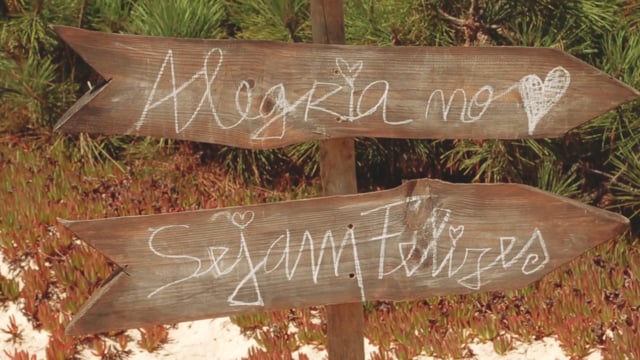 Alegria no ♥
Sejam Felizes